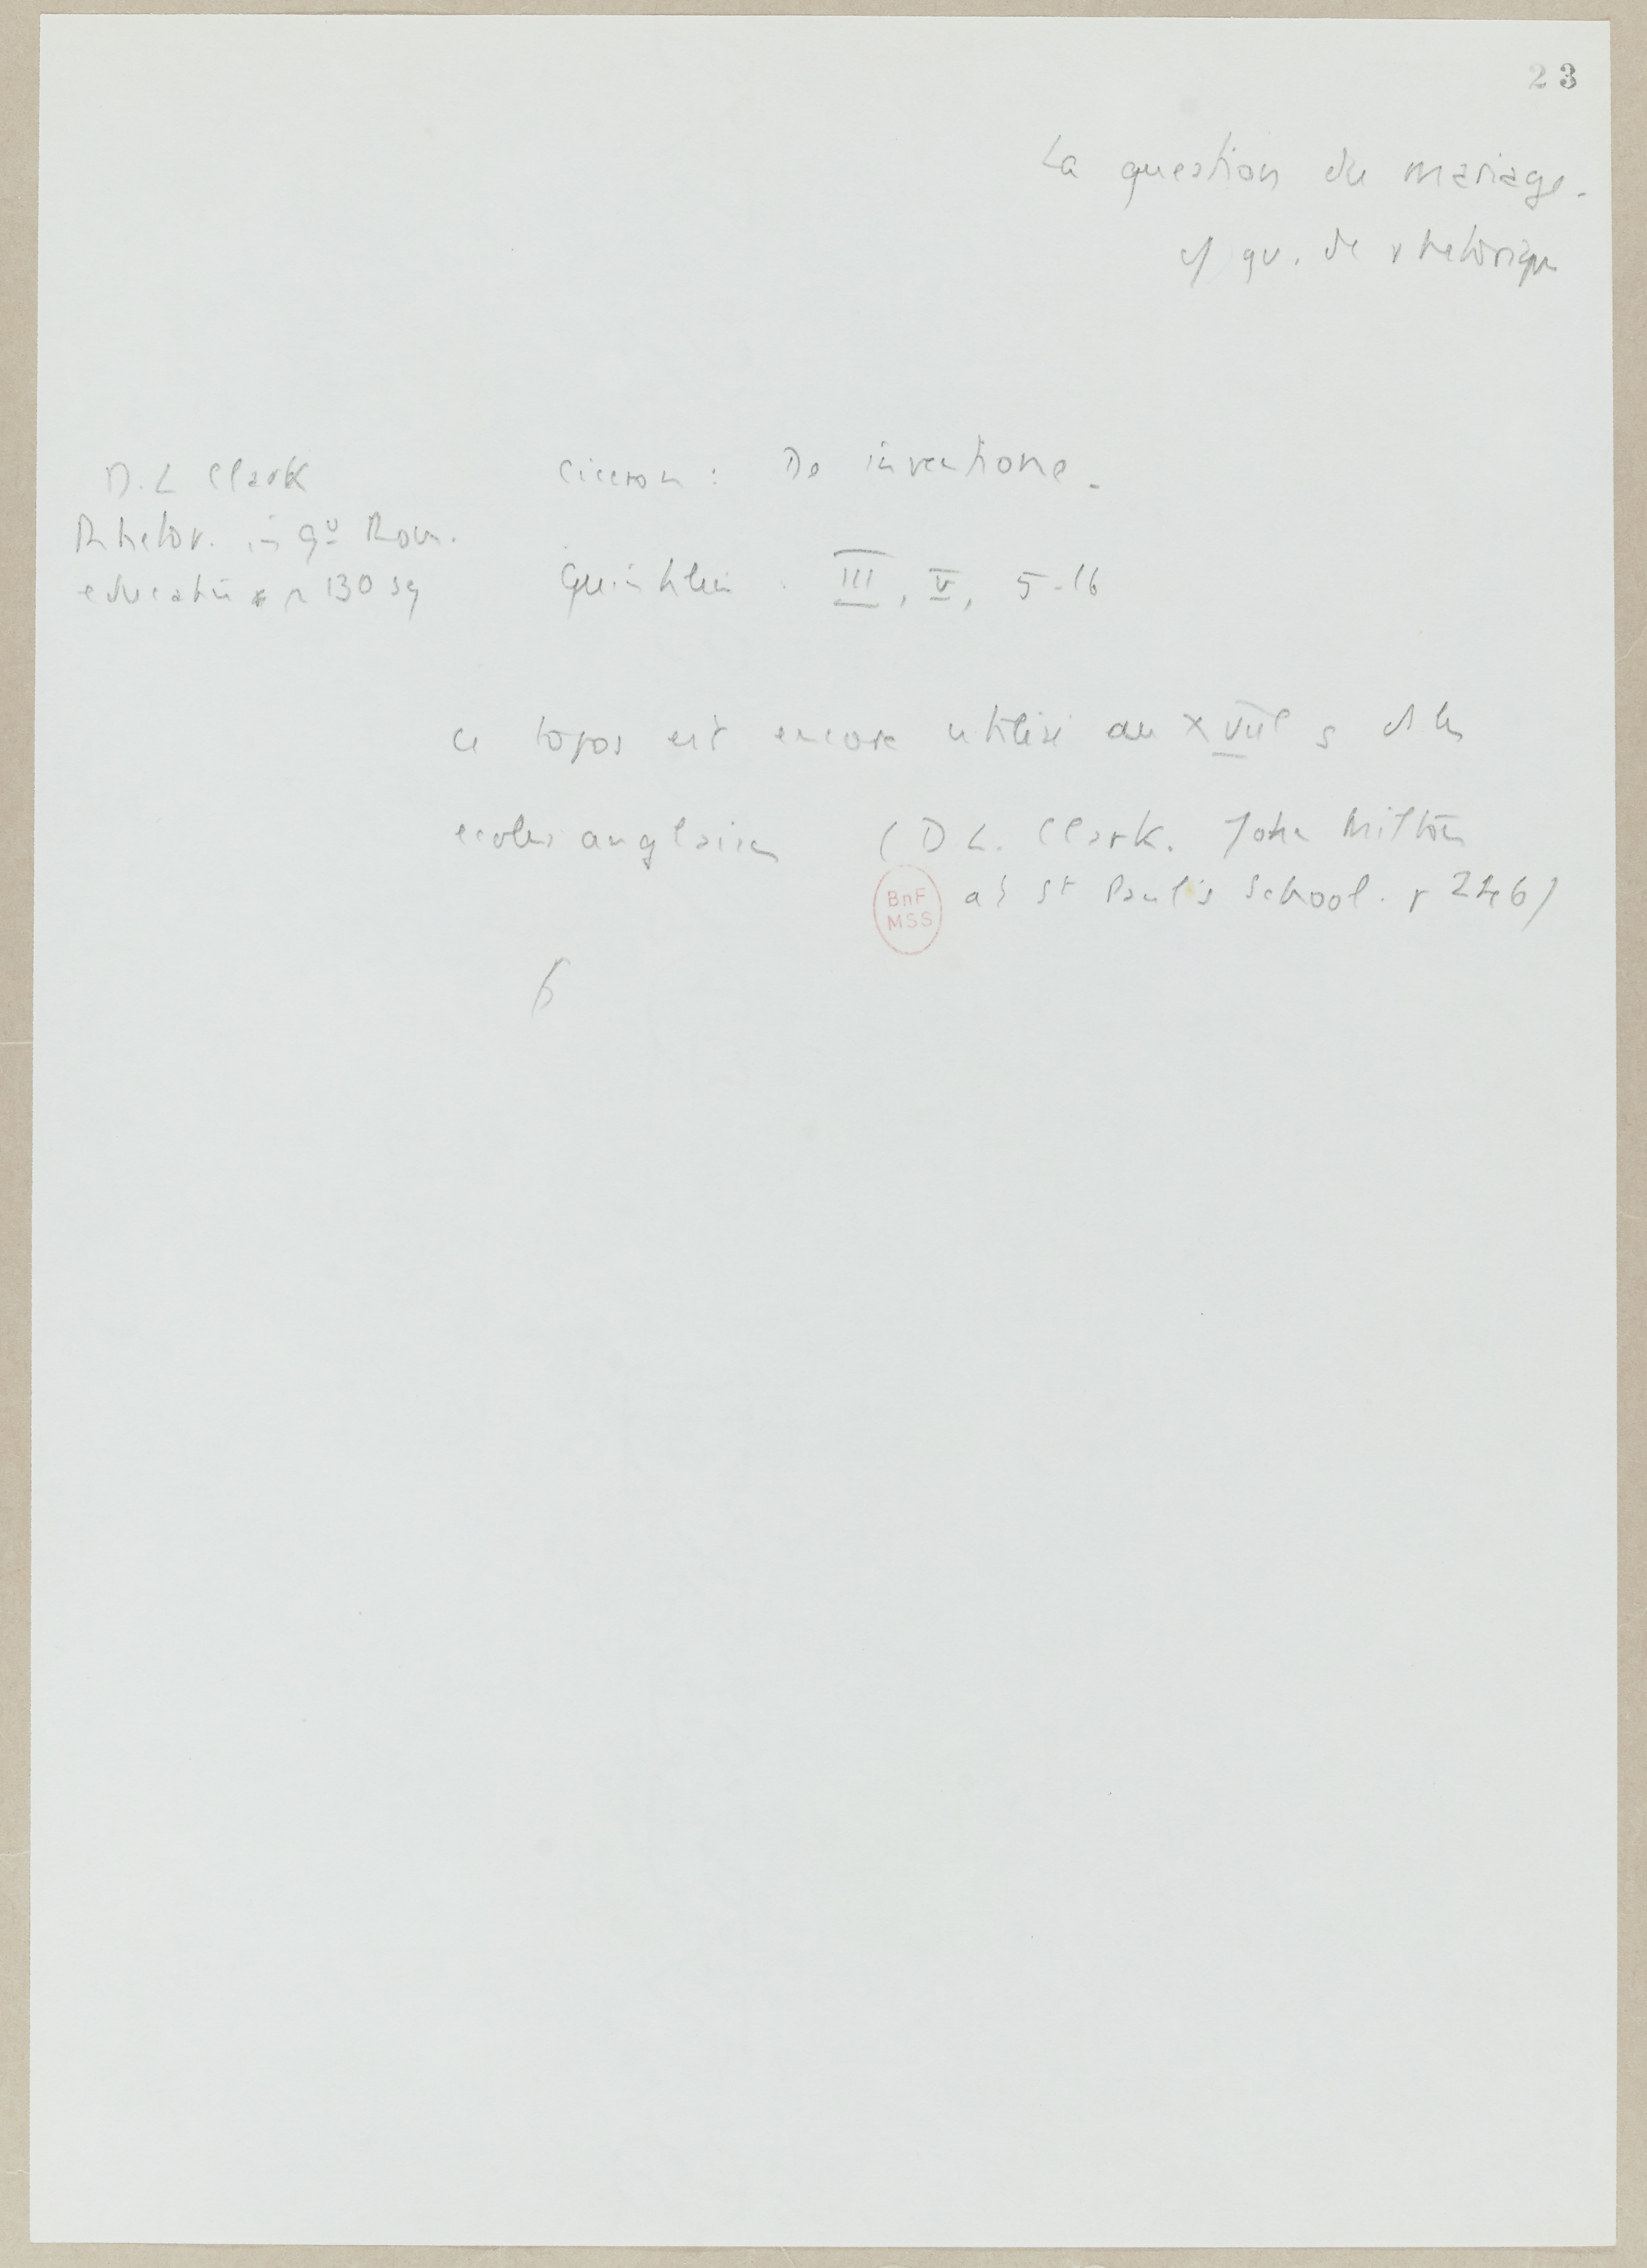 23
La question du mariage.
cf qu. de rhetorique
D. L Clark
Rhetor. in g^o Rom.
education p 130 sq
Ciceron : De inventione.
Quintilien : III, V, 5-16
ce topos est encore utilisé au XVIIe s ds les
ecoles anglaises (D L. Clark. John Milton
at St Paul's School. p 246)
BnF
MSS